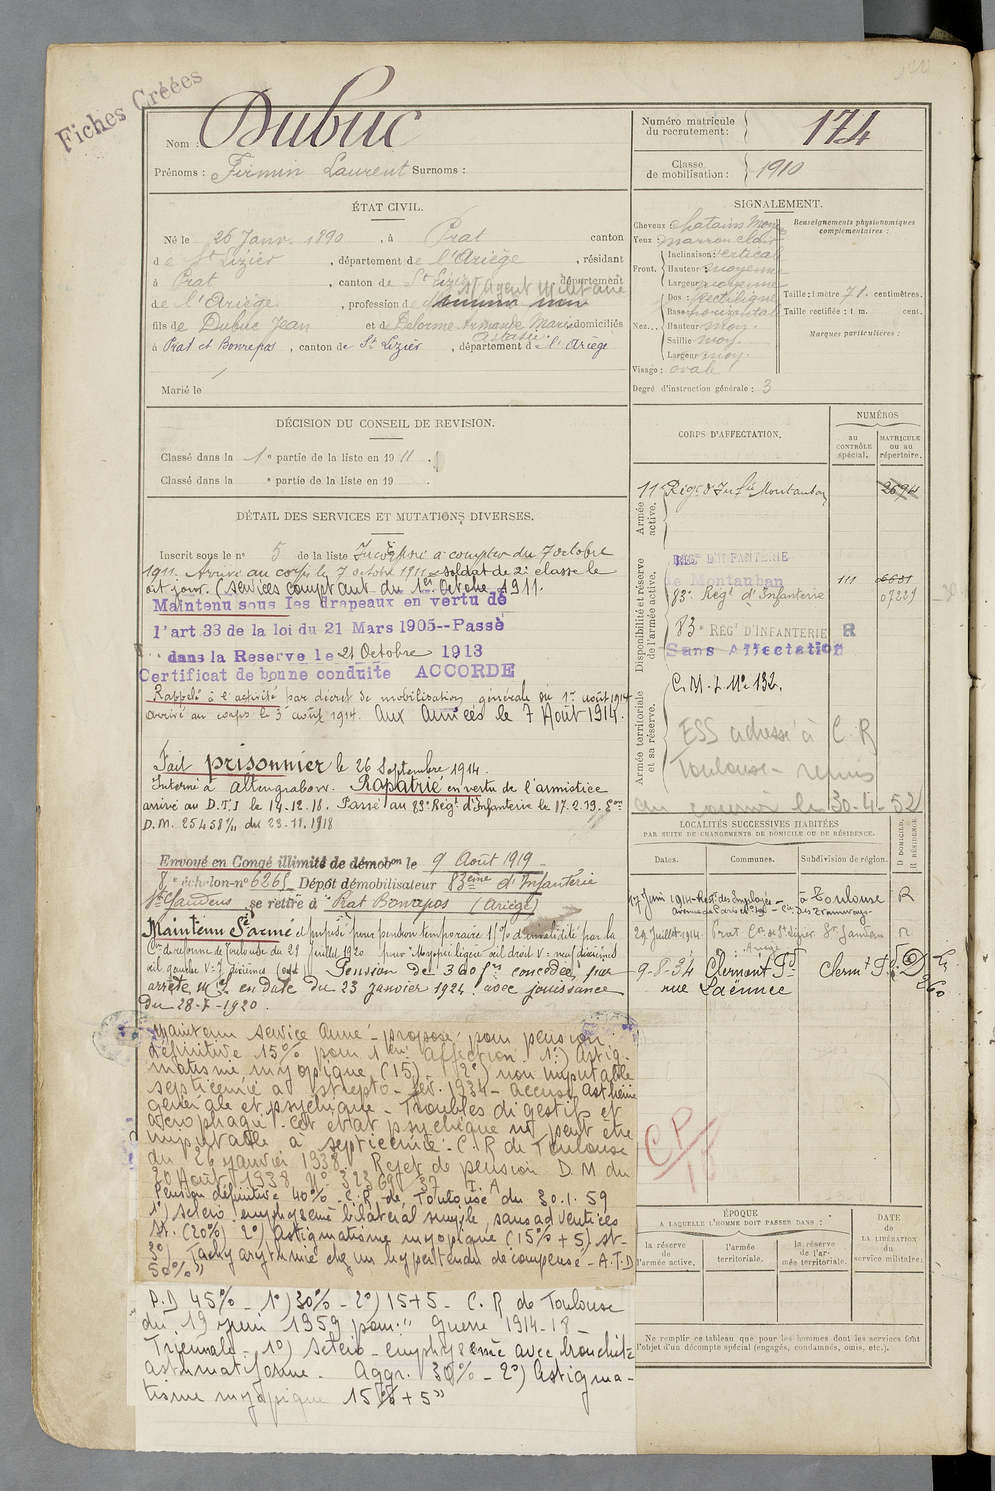 Fiches Créées
Nom : Dubuc
Prénoms : Firmin Laurent Surnoms :
Numéro matricule du recrutement : 174
Classe de mobilisation : 1910
ÉTAT CIVIL.
Né le 26 Janv. 1890, à Prat canton
de St Lizier, département de l'Ariège, résidant
à Prat, canton de St Lizier département
de l'Ariège, profession de Agent Militaire
fils de Dubuc Jean et de Delorme Armande Marie domiciliés
Astasie
à Prat et Bonrepos, canton de St Lizier, département de l'Ariège
Marié le
SIGNALEMENT.
Cheveux chatains moy
Yeux : marron clair
Front. Inclinaison : verticale
Hauteur : moyenne
Largeur : moyenne
Nez... Dos : Rectiligne
Base : horizontale
Hauteur : moy.
Saillie : moy.
Largeur : moy.
Visage : ovale
Degré d'instruction générale : 3
Renseignements physionomiques complémentaires :
Taille : 1 mètre 71 centimètres.
Taille rectifiée : 1 m. cent.
Marques particulières :
DÉCISION DU CONSEIL DE REVISION.
Classé dans la 1e partie de la liste en 1911.
Classé dans la e partie de la liste en 19
DÉTAIL DES SERVICES ET MUTATIONS DIVERSES.
Inscrit sous le no 5 de la liste Incorporé à compter du 7 octobre
1911. Arrivé au corps le 7 octobre 1911 soldat de 2e classe le
dit jour. (services comptant du 1er Octobre 1911.
Maintenu sous les drapeaux en vertu de
l'art. 33 de la loi du 21 Mars 1905--Passé
dans la Reserve le 21 Octobre 1913
Certificat de bonne conduite ACCORDE
Rappelé à l'activité par décret de mobilisation générale du 1er août 1914
arrivé au corps le 3 août 1914. Aux Armées le 7 Août 1914.
Fait prisonnier le 26 Septembre 1914.
Interné à Altengrabow. Rapatrié en vertu de l'armistice
arrivé au D.T.I le 14-12-18. Passé au 83e Régt d'Infanterie le 17.2.19.
D.M. 25458 1/11 du 23-11-1918
Envoyé en Congé illimité de démobon le 9 Août 1919
8e échelon-no 6265 Dépôt démobilisateur 83eme d'Infanterie
St Gaudens se retire à Prat Bonrepos (Ariège)
Maintenu Sce armé et proposé pour pension temporaire 11% d'invalidité par la
Con de réforme de Toulouse du 28 Juillet 1920 pour Myopie légère œil droit V= neuf dixièmes
œil gauche V= 7 dixièmes Pension de 360frs concédée par
arrêté Mel en date du 23 janvier 1924 avec jouissance
du 28-7-1920.
Maintenu service Armé - proposé pour pension
définitive 15% pour 1ere affection 1°) Astig-
matisme myopique (15) - (2°) non imputable
septicémie à strepto- fév. 1934 - accuse asthénie
générale et psychique - Troubles digestifs et
aérophagie. Cet état psychique ne peut être
imputable à septicémie. C.R de Toulouse
du 26 janvier 1938. Rejet de pension D M du
20 Août 1938
Pension définitive 40% - C.R. de Toulouse du 30.1.59
1°) Scléro emphysème bilatéral simple, sans adventices
St. (20%) 2°) Astigmatisme myopique (15% + 5) St-
3°) Tachyarythmie chez un hypertendu décompensé - A.T.D
50%"
P.D 45% - 1°) 30% - 2°) 15+5 - C.R de Toulouse
du 19 juin 1959 pour: "Guerre 1914-18
Triennale - 1°) Scléro-emphysème avec bronchite
asthmatiforme. Aggr. 30% - 2°) Astigma-
tisme myopique 15% + 5"
CORPS D'AFFECTATION.
NUMÉROS
AU CONTRÔLE spécial.
MATRICULE ou au répertoire.
Armée active.
11e Régt d'Infie Montauban 2694
Disponibilité et réserve de l'armée active.
RÉGt D'INFANTERIE
de Montauban 111
83e Régt d'Infanterie 07229
83e RÉGt D'INFANTERIE R
Sans Affectation
Armée territoriale et sa réserve.
C.M.I. No 132.
ESS adressé à C.R
Toulouse - remis
au courrier le 30-4-52
LOCALITÉS SUCCESSIVES HABITÉES
PAR SUITE DE CHANGEMENTS DE DOMICILE OU DE RÉSIDENCE.
Dates. Communes. Subdivision de région. D DOMICILE. R RÉSIDENCE.
17 Juin 1914 à Toulouse R
29 Juillet 1914 Prat Con de St Lizier St Gaudens R
Ariège
9-8-34 Clermont Fd Clermt Fd D
rue Laënnec
CP
ÉPOQUE
A LAQUELLE L'HOMME DOIT PASSER DANS :
la réserve de l'armée active.
l'armée territoriale.
la réserve de l'armée territoriale.
DATE de LA LIBÉRATION du service militaire :
Ne remplir ce tableau que pour les hommes dont les services font
l'objet d'un décompte spécial (engagés, condamnés, omis, etc.).